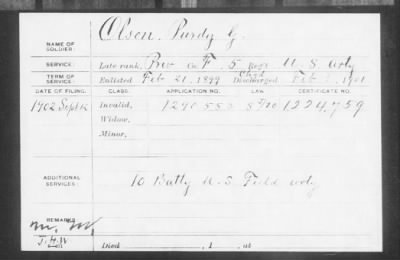 Olsen, Purdy G.
NAME OF SOLDIER:
SERVICE: Late rank, Priv Co. F, 5 Reg't U. S. Arty
TERM OF SERVICE: Enlisted Feb 21, 1899 Discharged Feb 1901
DATE OF FILING. CLASS. APPLICATION NO. LAW. CERTIFICATE NO.
1902 Sept 12 Invalid, 1290553 1224,759
Widow,
Minor,
ADDITIONAL SERVICES: 10 Batty U. S. Field Arty
REMARKS:
Died , 1 , at